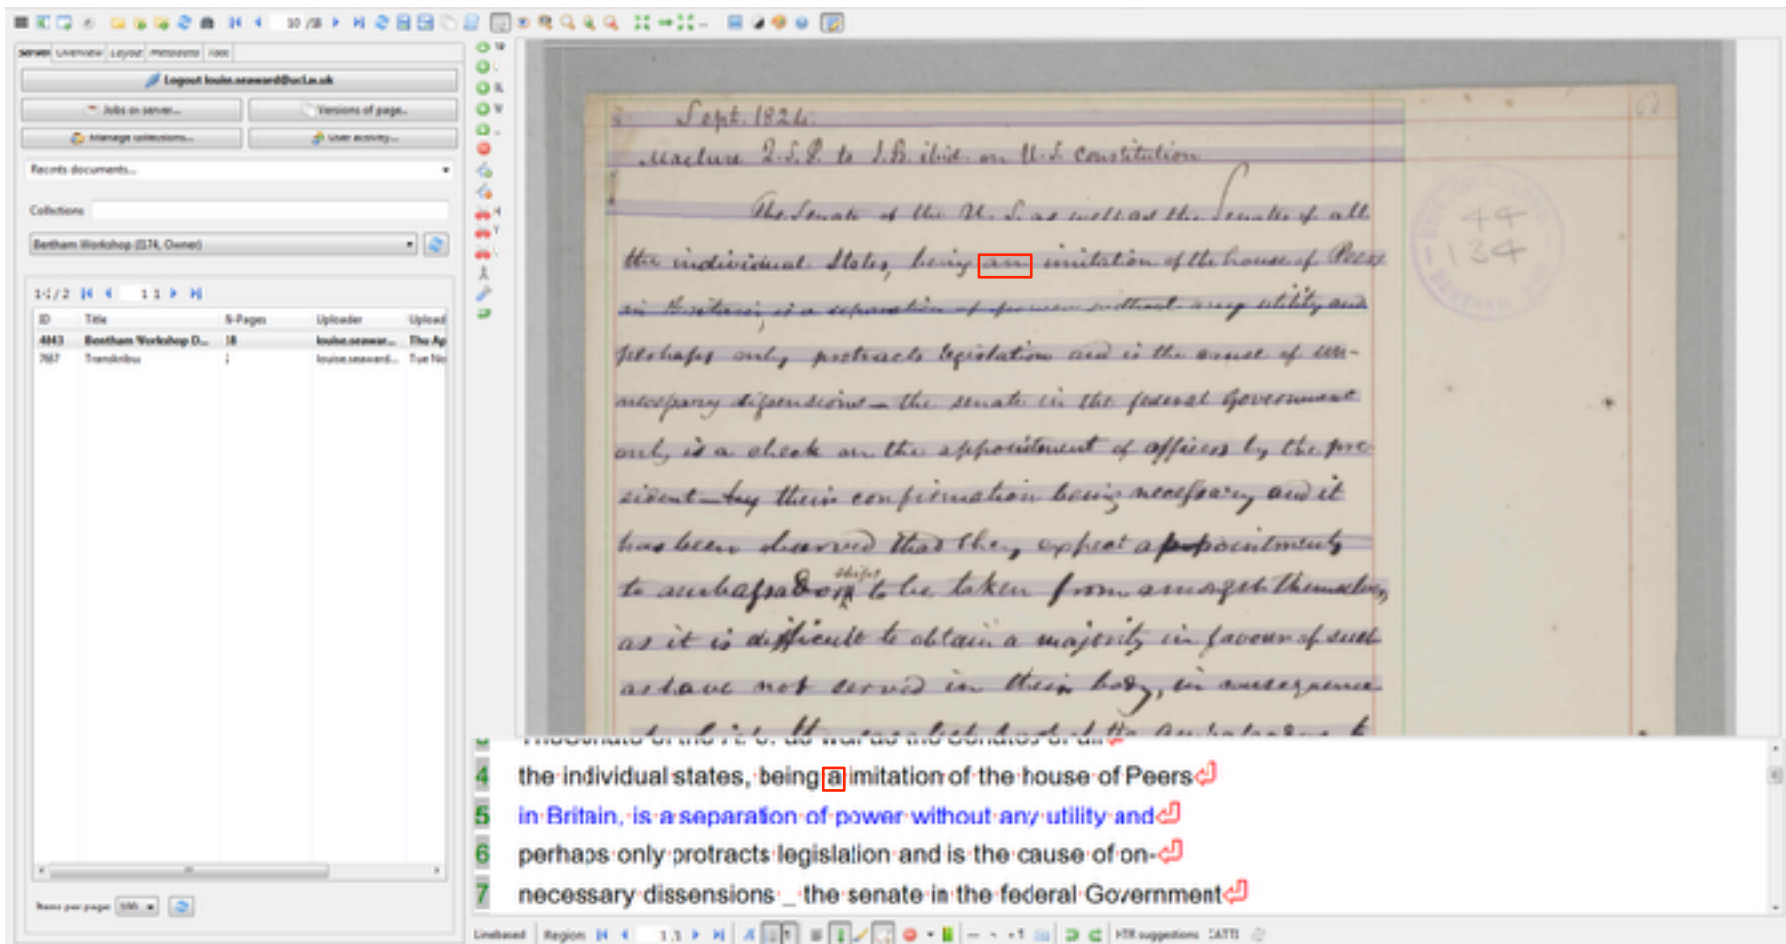 10 /18
Server Overview Layout Metadata Tools
Logout louise.seaward@ucl.ac.uk
Jobs on server... Versions of page...
Manage collections... User activity...
Recents documents...
Collections
Bentham Workshop (574, Owner)
1-2/2 1 1
ID Title N-Pages Uploader Upload
4843 Bentham Workshop D... 18 louise.seawar... Thu Ap
7657 Transkribus louise.seaward... Tue No
Items per page: 100...
Sept. 1824.
Maclure Q.S.P. to J.B. ibid. on U.S. Constitution
The Senate of the U. S. as well as the Senates of all
the individual States, being an imitation of the house of Peers
in Britain, is a separation of power without any utility and
perhaps only protracts legislation and is the cause of un-
necessary dissensions — the senate in the federal Government
only is a check on the appointment of officers by the pre-
sident — by their confirmation being necessary and it
has been observed that they expect appointments
to ambassadorships to be taken from amongst themselves,
as it is difficult to obtain a majority in favour of such
as have not served in their body, in consequence
UNIV. COLL. LOND.
44
134
BENTHAM MSS
4 the individual states, being a imitation of the house of Peers
5 in Britain, is a separation of power without any utility and
6 perhaps only protracts legislation and is the cause of on-
7 necessary dissensions _ the senate in the federal Government
Linebased Region 1,1 HTR suggestions CATTI